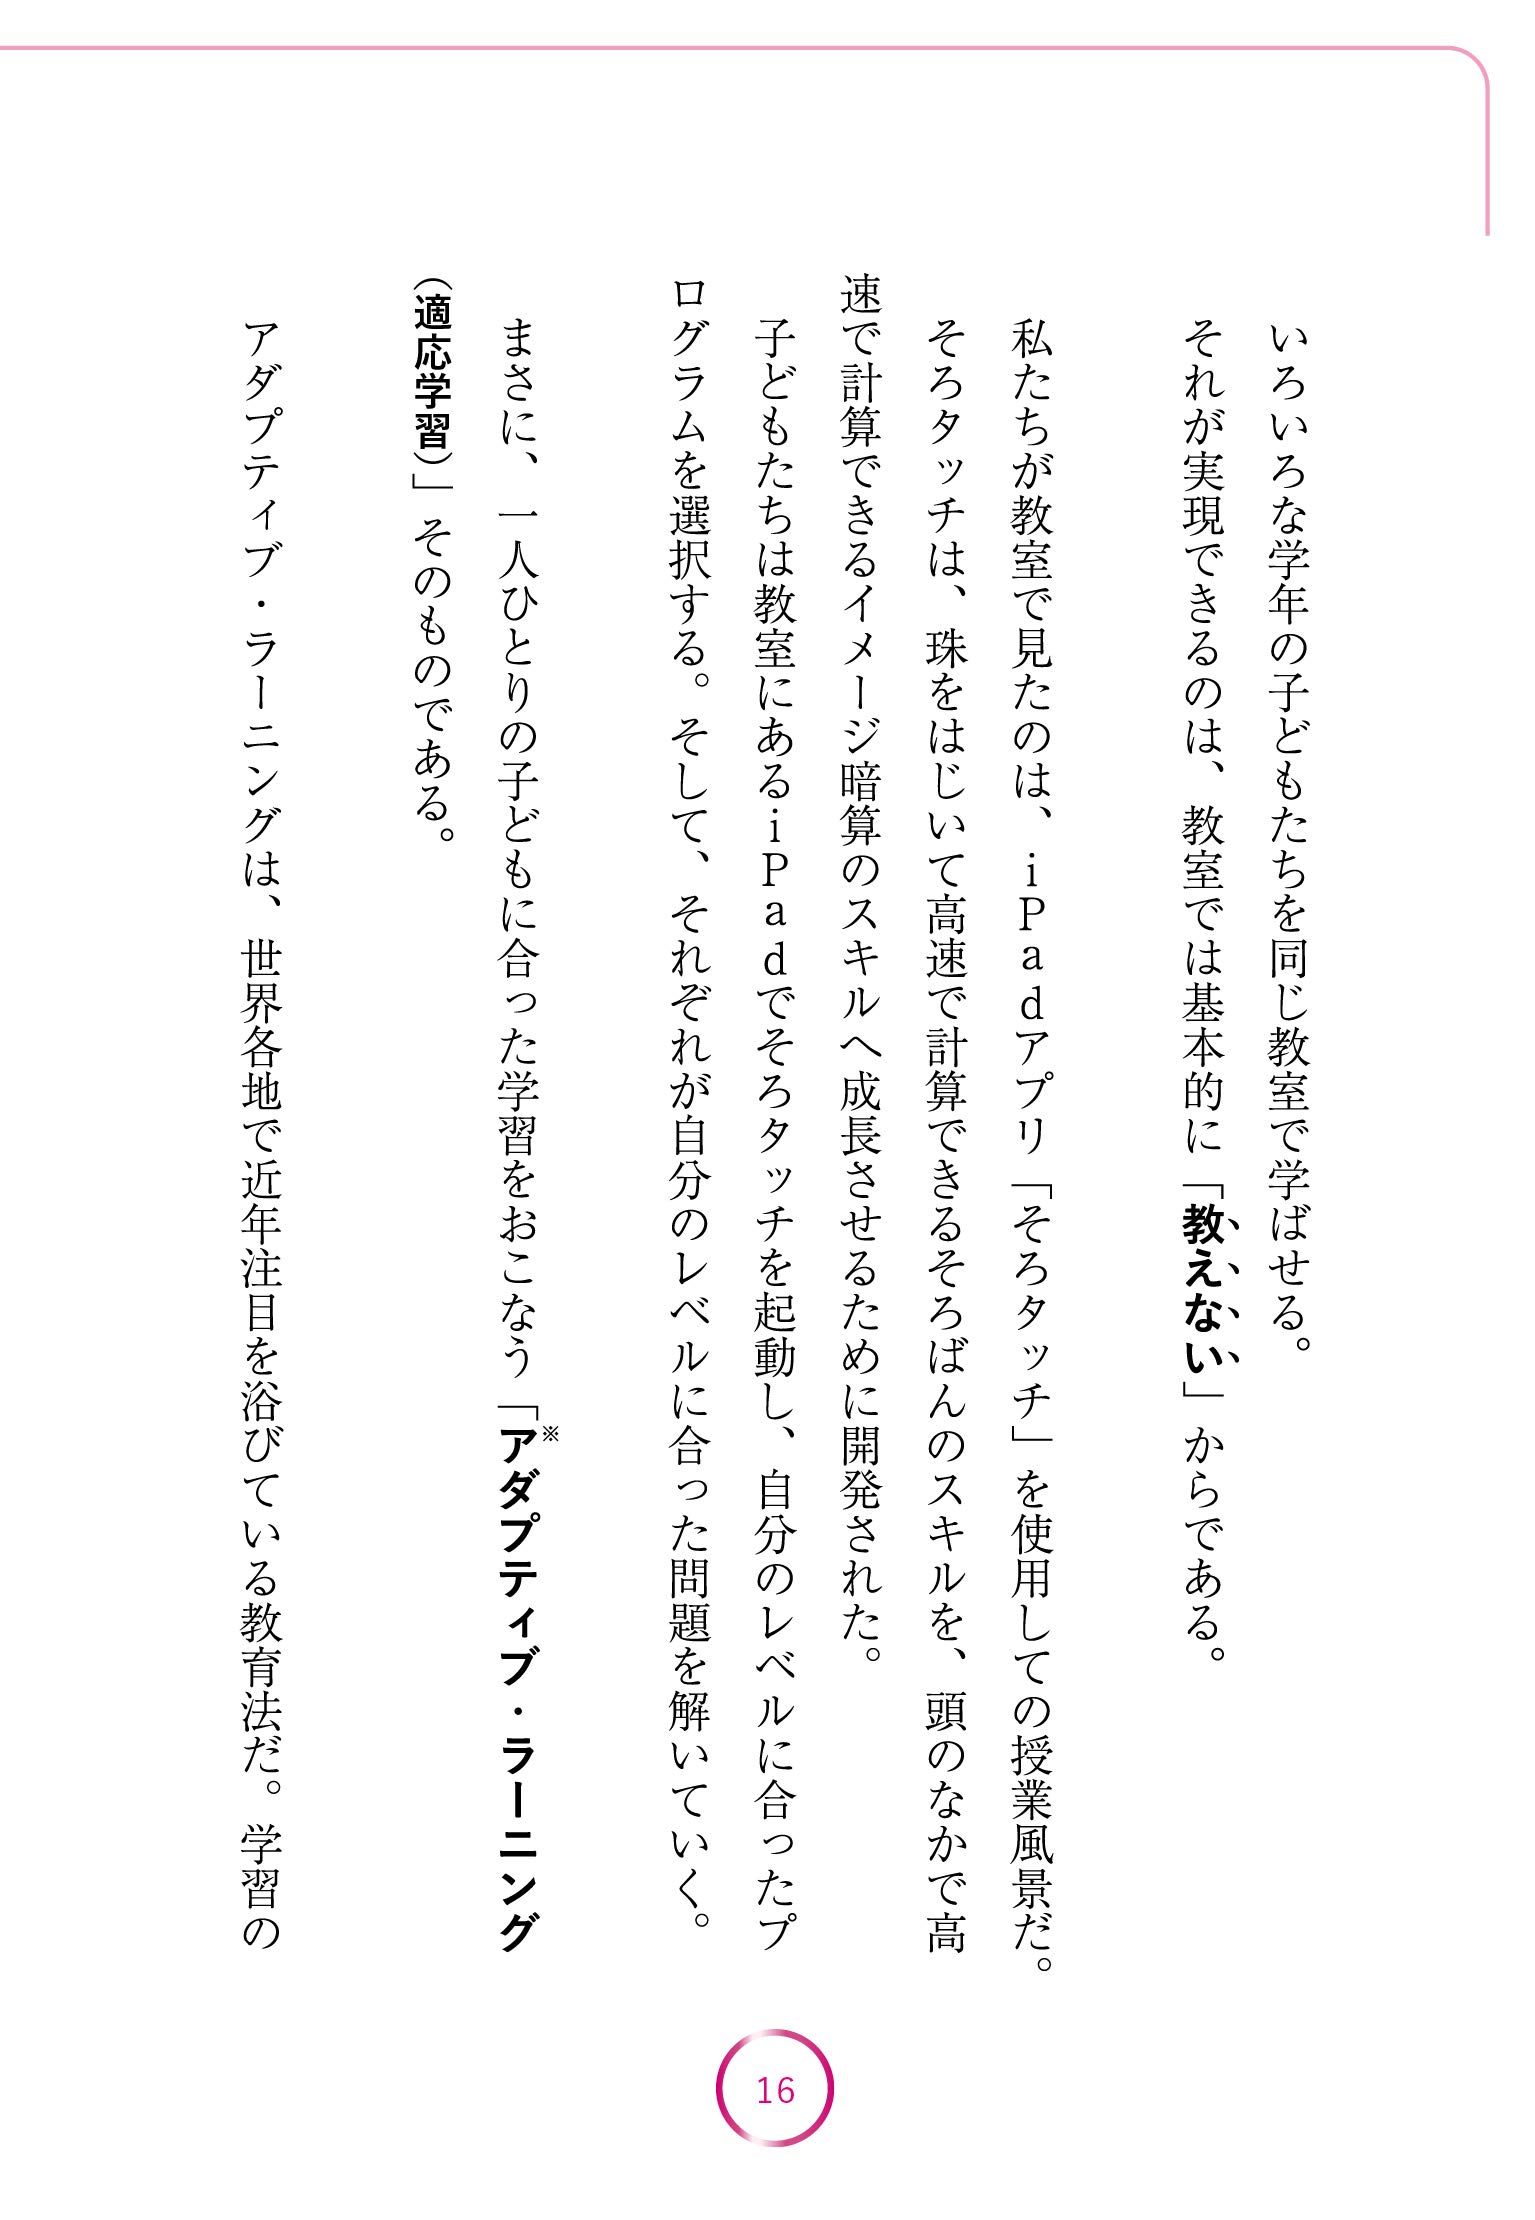 いろいろな学年の子どもたちを同じ教室で学ばせる。
それが実現できるのは、教室では基本的に「教えない」からである。
私たちが教室で見たのは、iPadアプリ「そろタッチ」を使用しての授業風景だ。
そろタッチは、珠をはじいて高速で計算できるそろばんのスキルを、頭のなかで高
速で計算できるイメージ暗算のスキルへ成長させるために開発された。
子どもたちは教室にあるiPadでそろタッチを起動し、自分のレベルに合ったプ
ログラムを選択する。そして、それぞれが自分のレベルに合った問題を解いていく。
まさに、一人ひとりの子どもに合った学習をおこなう「※アダプティブ・ラーニング
（適応学習）」そのものである。
アダプティブ・ラーニングは、世界各地で近年注目を浴びている教育法だ。学習の
16